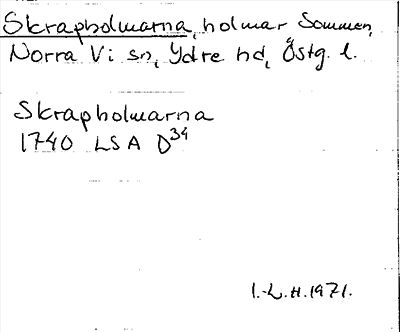 Skrapholmarna, holmar Sommen,
Norra Vi sn, Ydre hd, Östg. l.
Skrapholmarna
1740 LSA D34
I.-L. H. 1971.